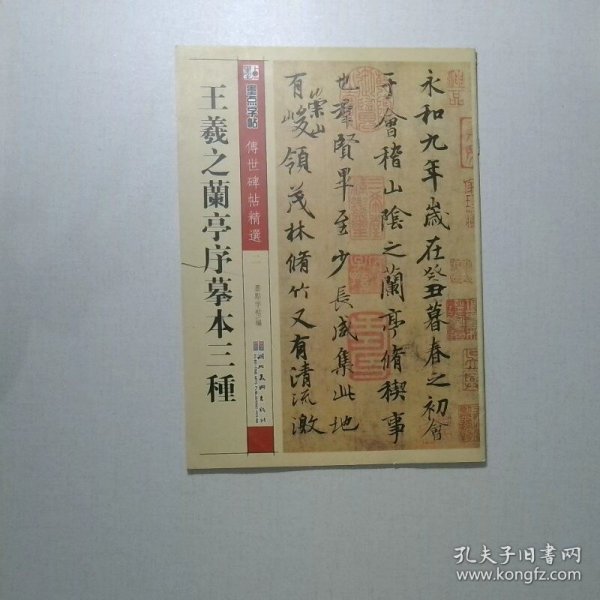 王羲之蘭亭序摹本三種
墨点字帖
傳世碑帖精選
二
墨點字帖 編
湖北美術出版社
永和九年歲在癸丑暮春之初會
于會稽山陰之蘭亭脩稧事
也羣賢畢至少長咸集此地
有崇山峻領茂林脩竹又有清流激
孔夫子旧书网
www.kongfz.com